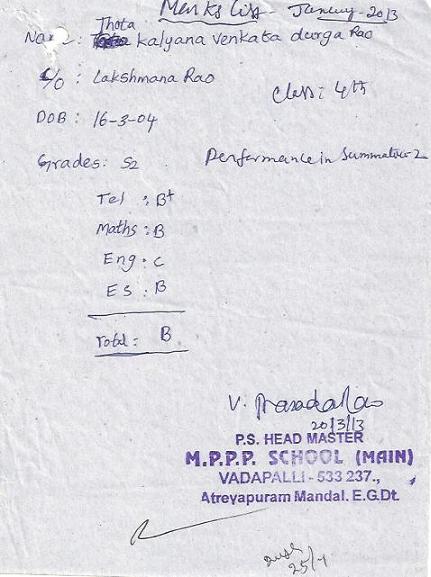 Marks List - January - 2013
Name : Thota kalyana venkata durga Rao
C/o : Lakshmana Rao
Class : 4th
DOB : 16-3-04
Grades : S2
Performance in Summative-2
Tel : B+
Maths : B
Eng : C
ES : B
Total : B
V. Prasada Rao
20/3/13
P.S. HEAD MASTER
M.P.P.P. SCHOOL (MAIN)
VADAPALLI - 533 237.,
Atreyapuram Mandal. E.G.Dt.
25/7